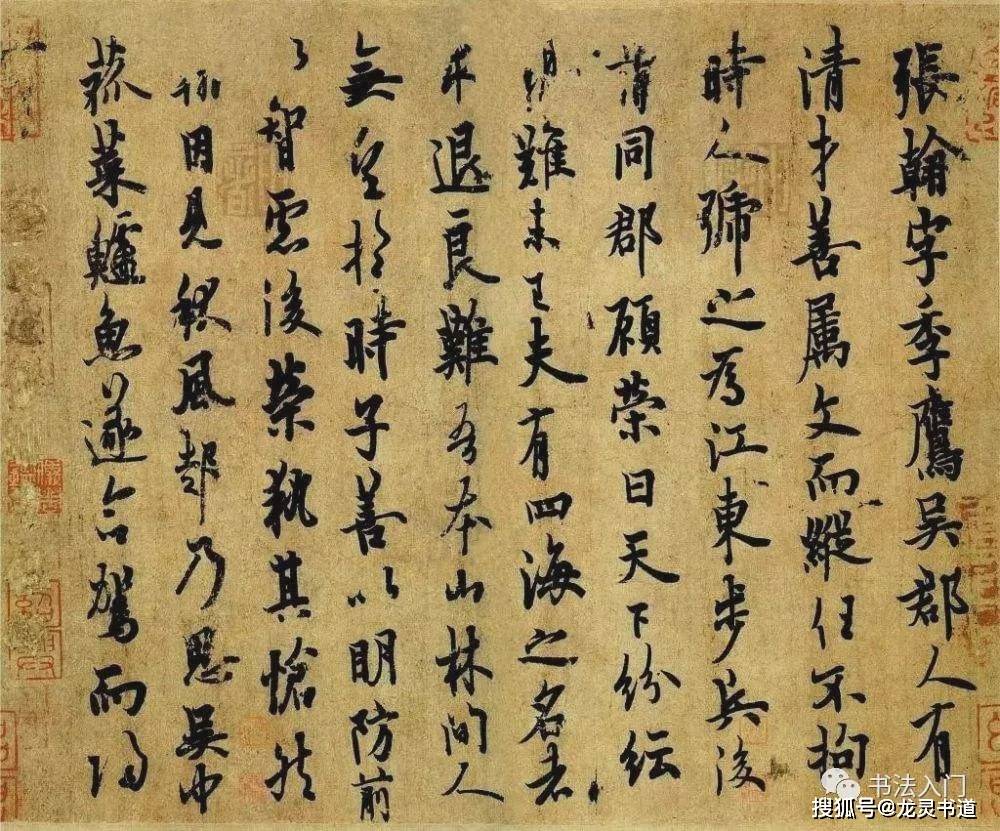 張翰字季鷹吳郡人有
清才善屬文而縱任不拘
時人號之為江東步兵後
謂同郡顧榮曰天下紛紜
難未已夫有四海之名者
求退良難吾本山林間人
無望於時子善以明防前
以智慮後榮執其愴然
因見秋風起乃思吳中
菰菜鱸魚遂命駕而歸
书法入门
搜狐号@龙灵书道